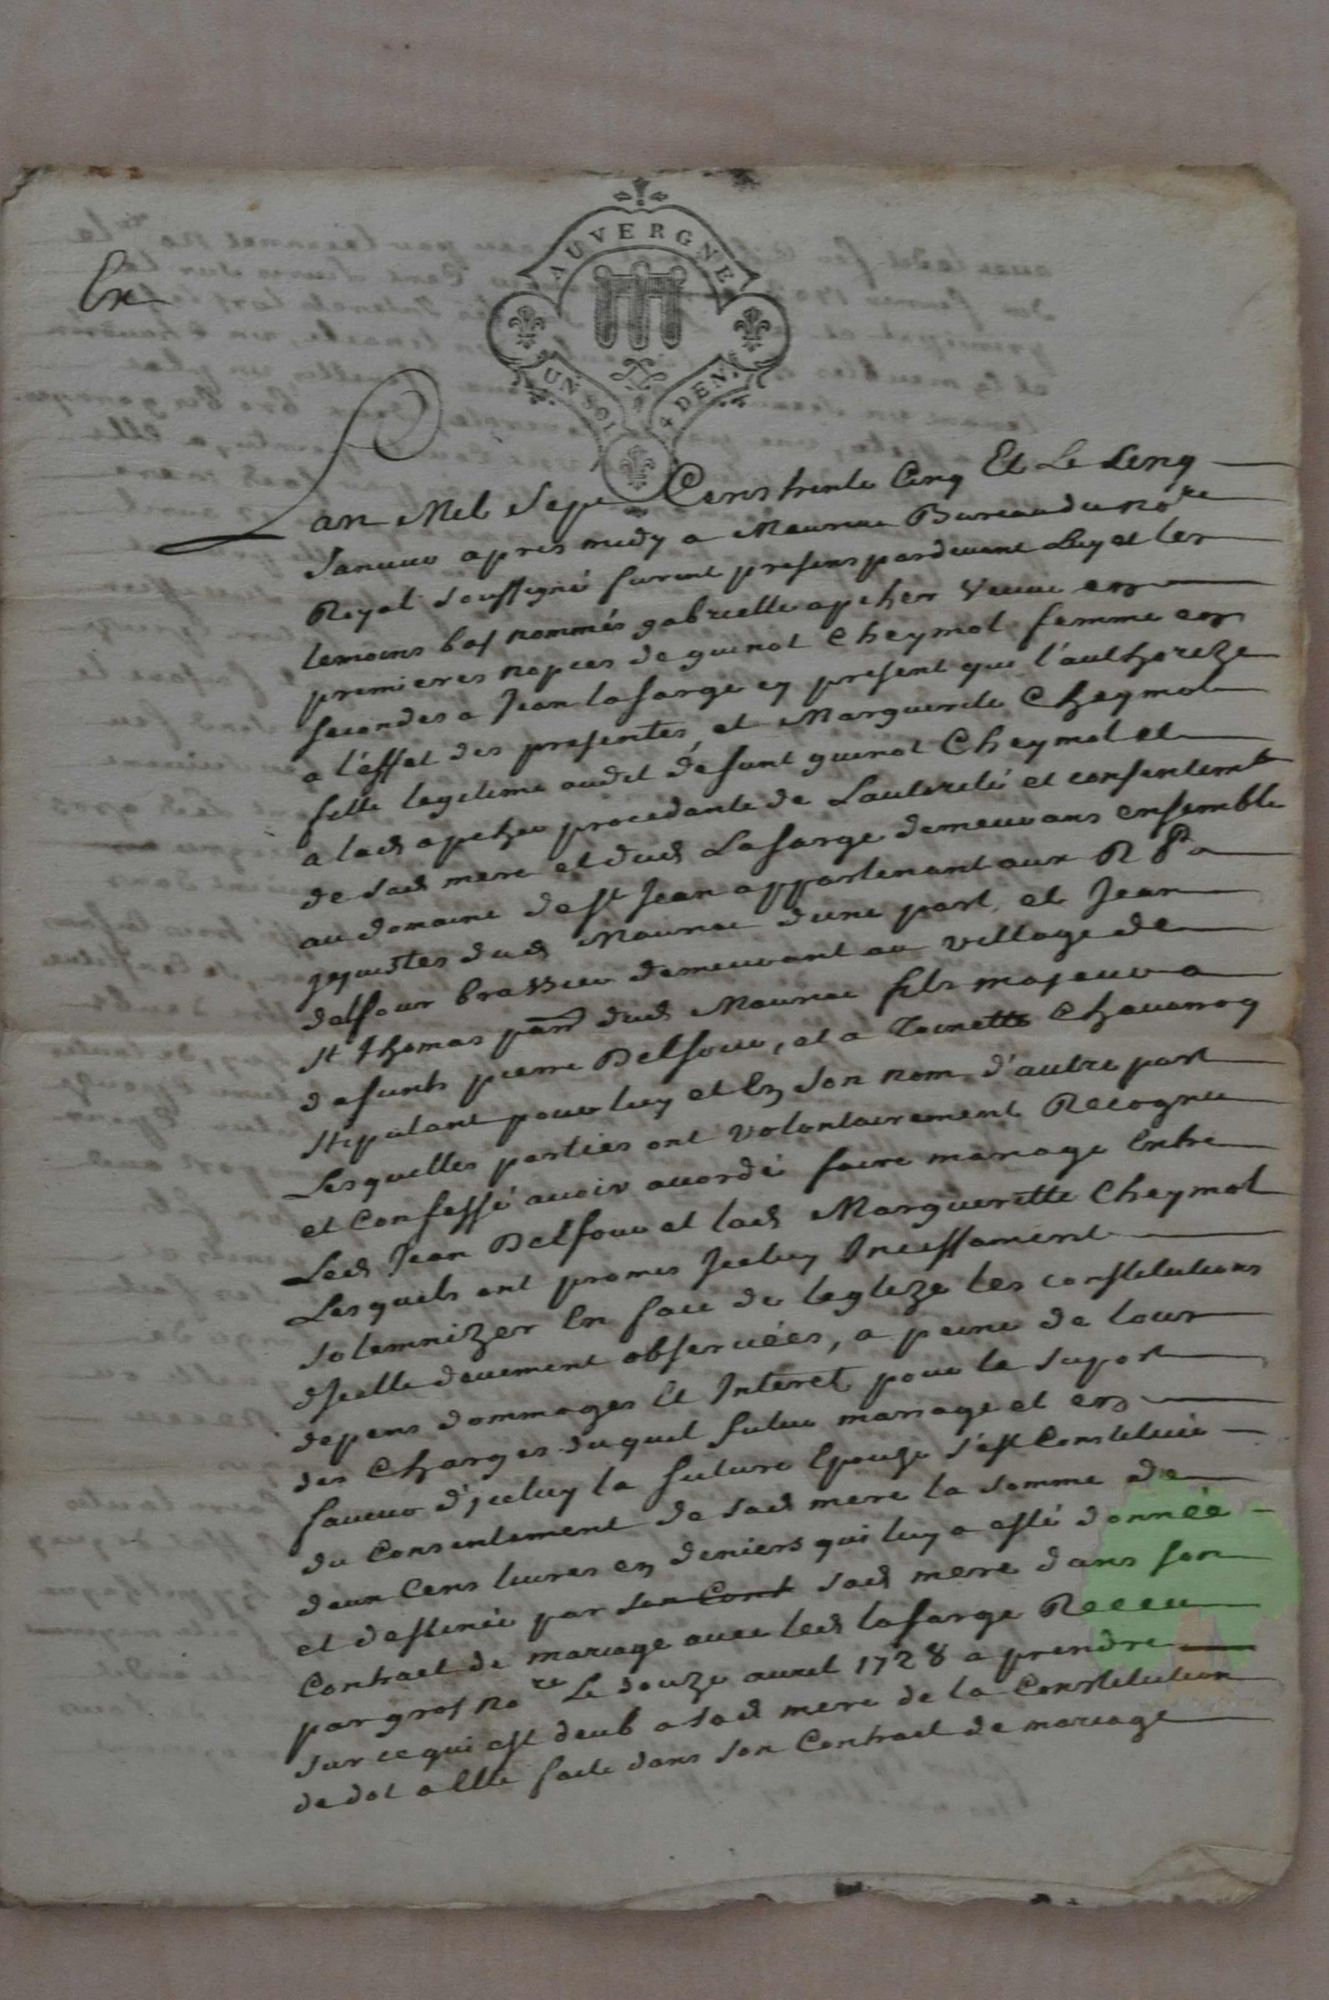 AUVERGNE
UN SOL 4 DEN.
Ex
Lan Mil Sept Cens trente Cinq Et Le Cinq
Januier apres midy a Mauriac Bureau du nore
Royal Soussigné furent presens pardeuant Luy et les
temoins bas nommés gabrielle apcher Veuue en
premieres nopces de guinot Cheymol femme en
secondes a Jean lafarge cy present qui l'authorize
a l'effet des presentes, et Marguerite Cheymol
fille legitime audit défunt guinot Cheymol et
a lad apcher procedante de Lautorité et consentemt
de Sad mere et dud Lafarge demeurans ensemble
au domaine de St Jean appartenant aux R Prs
jesuistes dud Mauriac dune part, et Jean
delfour brassier demeurant au village de
St Thomas parr dud Mauriac fils majeur a
defunts pierre Delfour, et a Toinette Chauaroq
Stipulant pour luy et En Son nom d'autre part
Lesquelles parties ont volontairement Recognu
et Confessé auoir accordé faire mariage Entre
Led Jean Delfour et lad Margueritte Cheymol
Lesquels ont promis Jceluy Incessament
Solemnizer En face de legleze les constitutions
dJcelle deuement obseruées, a peine de tous
depens dommages Et Interet, pour le Suport
des Charges duquel futur mariage et en
faueur d'jceluy la future Epouze s'est Constituée
du Consentement de Sad mere la somme de
deux Cens liures en deniers qui luy a esté donnée
et destinée par son Cont sad mere dans son
Contract de mariage auec led lafarge Receu
par gros nore Le douze auril 1728 a prendre
Sur ce qui est deub a Sad mere de la Constitution
de dot a Elle faite dans Son Contract de mariage